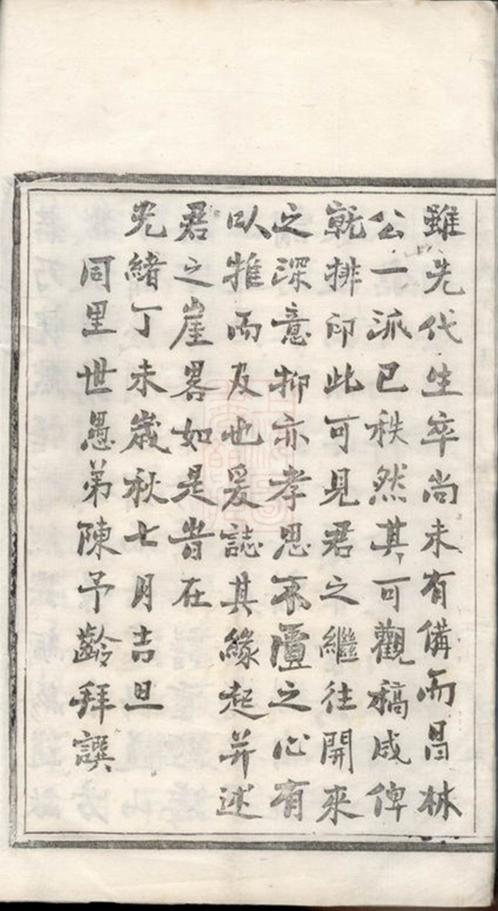 雖先代生卒尚未有備而昌林
公一派已秩然其可觀稿成俾
就排印此可見君之繼往開來
之深意抑亦孝思不匱之心有
以推而及也爰誌其緣起并述
君之崖畧如是昔在
光緒丁未歲秋七月吉旦
同里世愚弟陳予齡拜譔